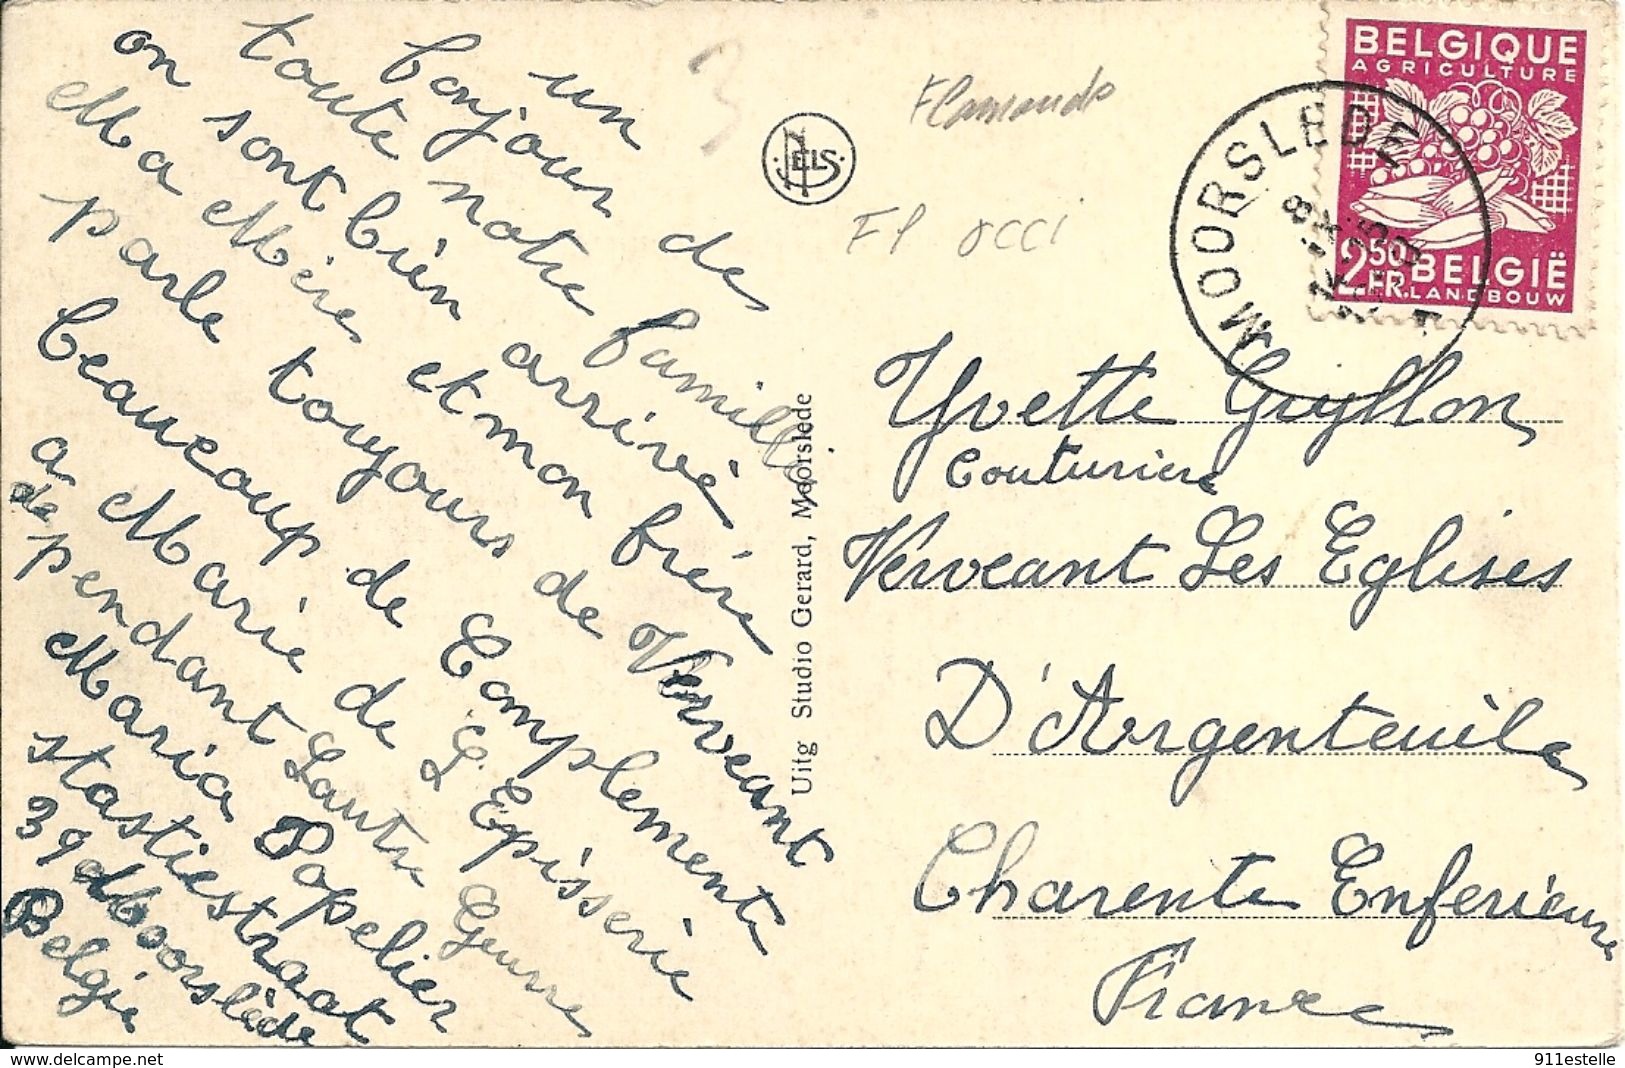 un
bonjour de
toute notre famille
on sont bièn arrivé
Ma Mère et mon frère
parle toujours de Verveant
beaucoup de Complemente
a Marie de L'Epissèrie
de pendant Lautre Guerre
Maria Papelier
stastiestraat
39 Moorslède
Belgie
Flamande
Fl occi
NELS
Uitg Studio Gerard, Moorslede
BELGIQUE
AGRICULTURE
2,50 BELGIË
FR. LANDBOUW
MOORSLEDE
Yvette Gryllon
Couturière
Verveant Les Eglises
D'Argenteuile
Charente Enferieure
France
911estelle
www.delcampe.net